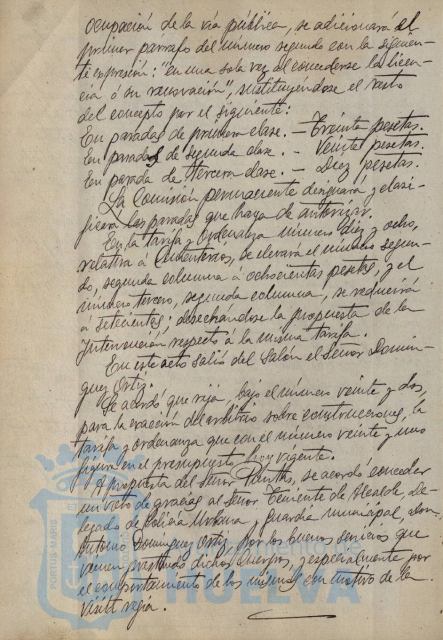 ocupación de la vía pública, se adicionará al
primer párrafo del número segundo con la siguien-
te expresión: "en una sola vez al concederse la licen-
cia ó su renovación", sustituyéndose el resto
del concepto por el siguiente:
En paradas de primera clase. — Treinta pesetas.
En paradas de segunda clase. — Veinte pesetas.
En parada de tercera clase. — Diez pesetas.
La Comisión permanente designará y clasi-
ficará las paradas que haya de autorizar.
En la tarifa y Ordenanza número diez y ocho,
relativa á Cementerios, se elevará el número segun-
do, segunda columna á ochocientas pesetas, y el
número tercero, segunda columna, se reducirá
á setecientas; desechándose la propuesta de la
Intervención respecto á la misma tarifa.
En este acto salió del Salón el Señor Domín-
guez Ortiz.
Se acordó que rija, bajo el número veinte y dos,
para la exacción del arbitrio sobre construcciones, la
tarifa y ordenanza que con el número veinte y uno
figura en el presupuesto hoy vigente.
A propuesta del Señor se acordó conceder
un voto de gracias al Señor Teniente de Alcalde, De-
legado de Policía Urbana y guardia municipal, Don
Antonio Domínguez Ortiz, por los buenos servicios que
vienen prestando dichos Cuerpos, y especialmente por
el comportamiento de los mismos con motivo de la
visita regia.
PORTUS MARIS
HUELVA